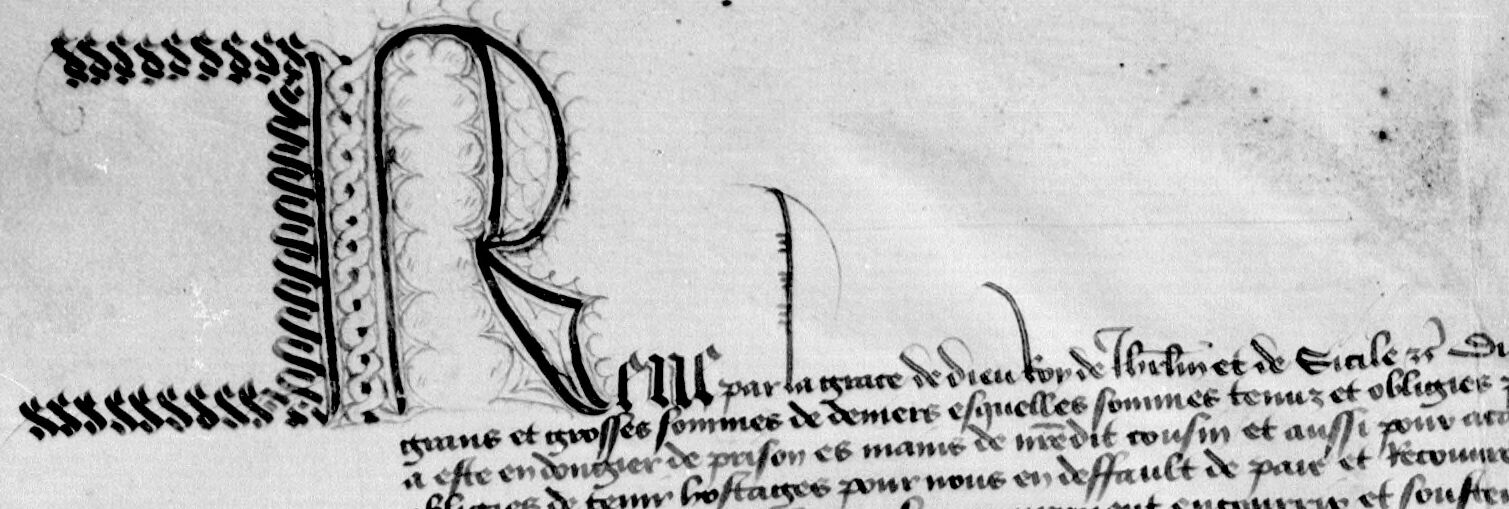 Rene par la grace de dieu Roy de Jhrlm et de Sicile &c Du
grans et grosses sommes de deniers esquelles sommes tenuz et obligies
a este en dongier de prison es mains de nredit cousin et aussi pour
obligies de tenir hostages pour nous en deffault de paie et Recouvre
encourrir et